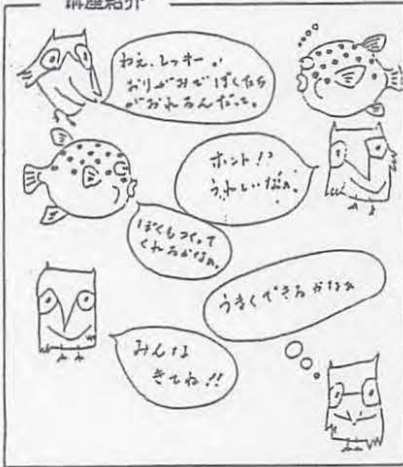 講座紹介
ねぇ、しっキー。
おりがみでぼくたち
がおれるんだって。
ホント!?
うれしいなぁ。
ぼくもつくって
くれるかなぁ。
うまくできるかなぁ
みんな
きてね!!